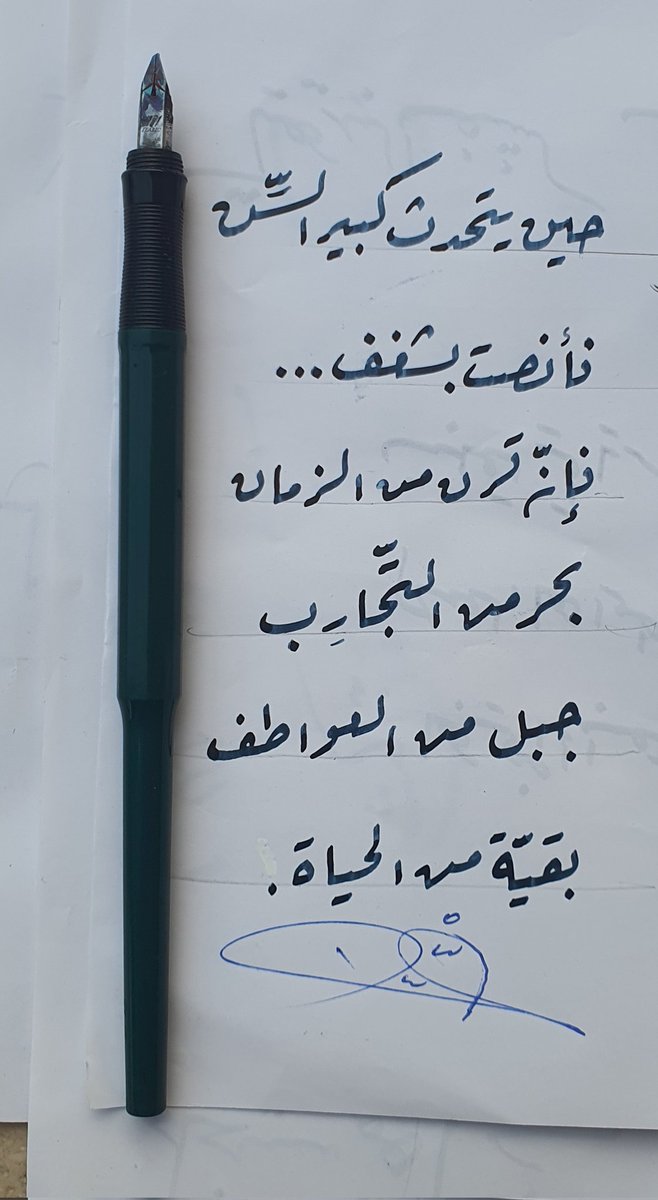 حين يتحدث كبير السِّن
فأنصت بشغف...
فإنّ قرن من الزمان
بحر من التَّجارِب
جبل من العواطف
بقيّة من الحياة.